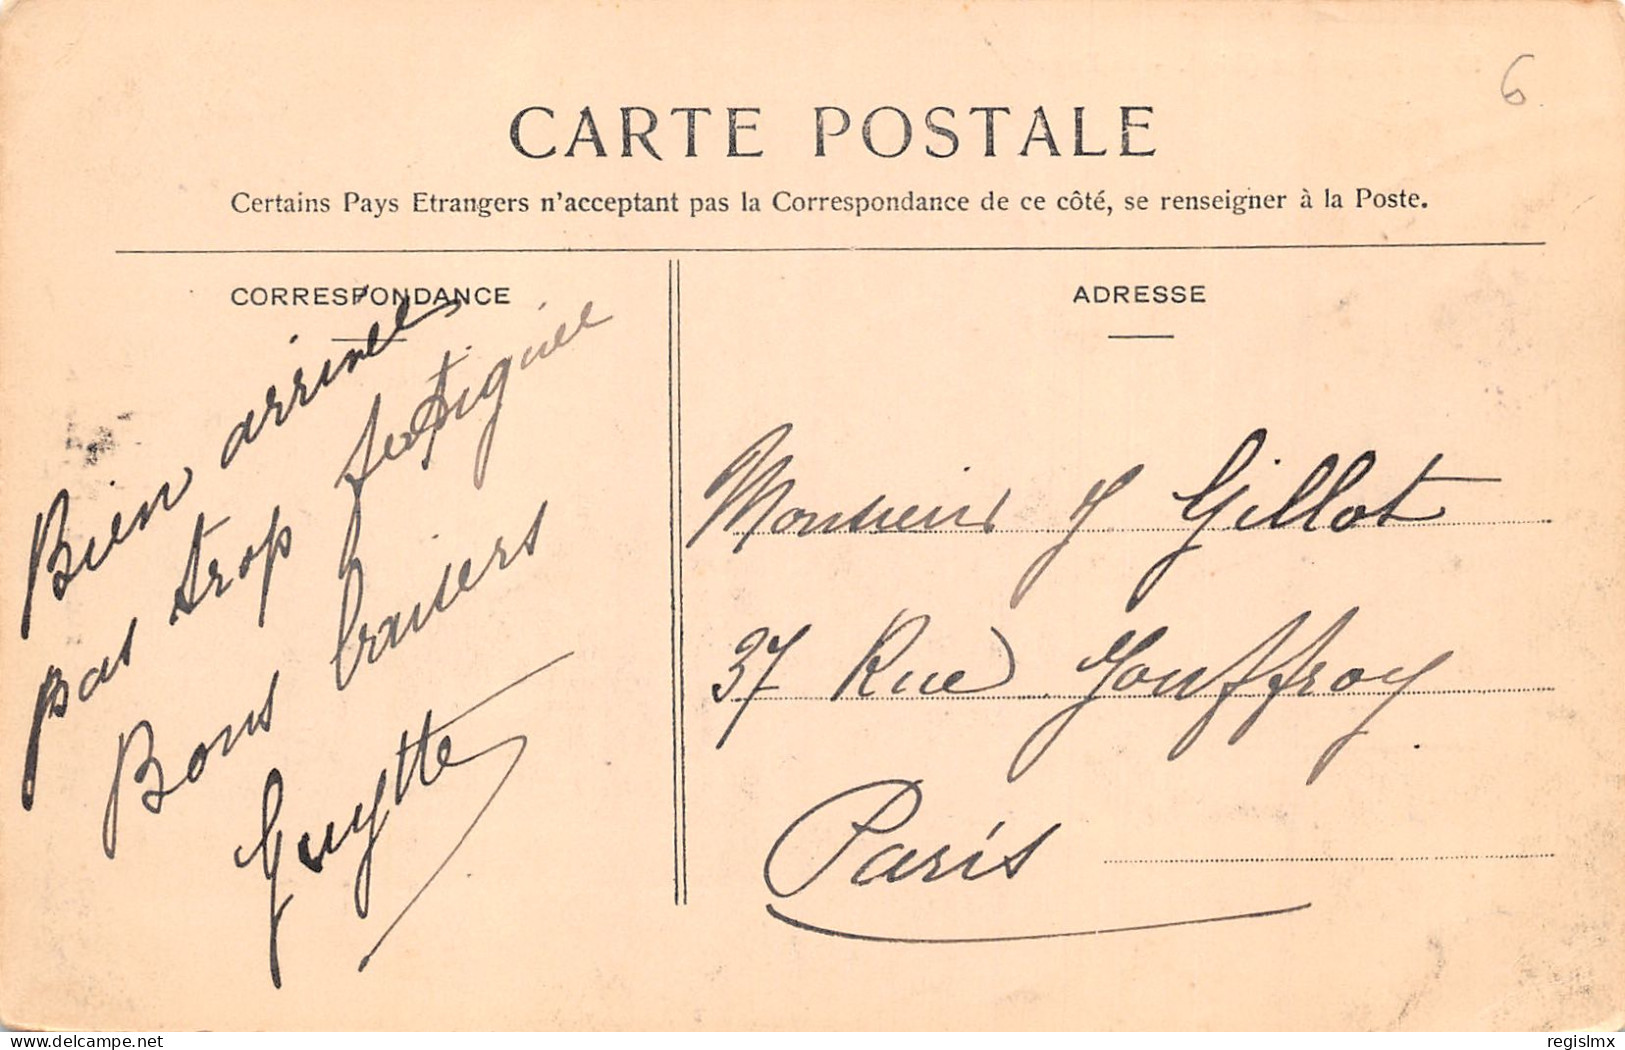 6
CARTE POSTALE
Certains Pays Etrangers n'acceptant pas la Correspondance de ce côté, se renseigner à la Poste.
CORRESPONDANCE
Bien arrivée
pas trop fatiguée
Bons baisers
Guytte
ADRESSE
Monsieur J Gillot
37 Rue Jouffroy
Paris
delcampe.net
regislmx